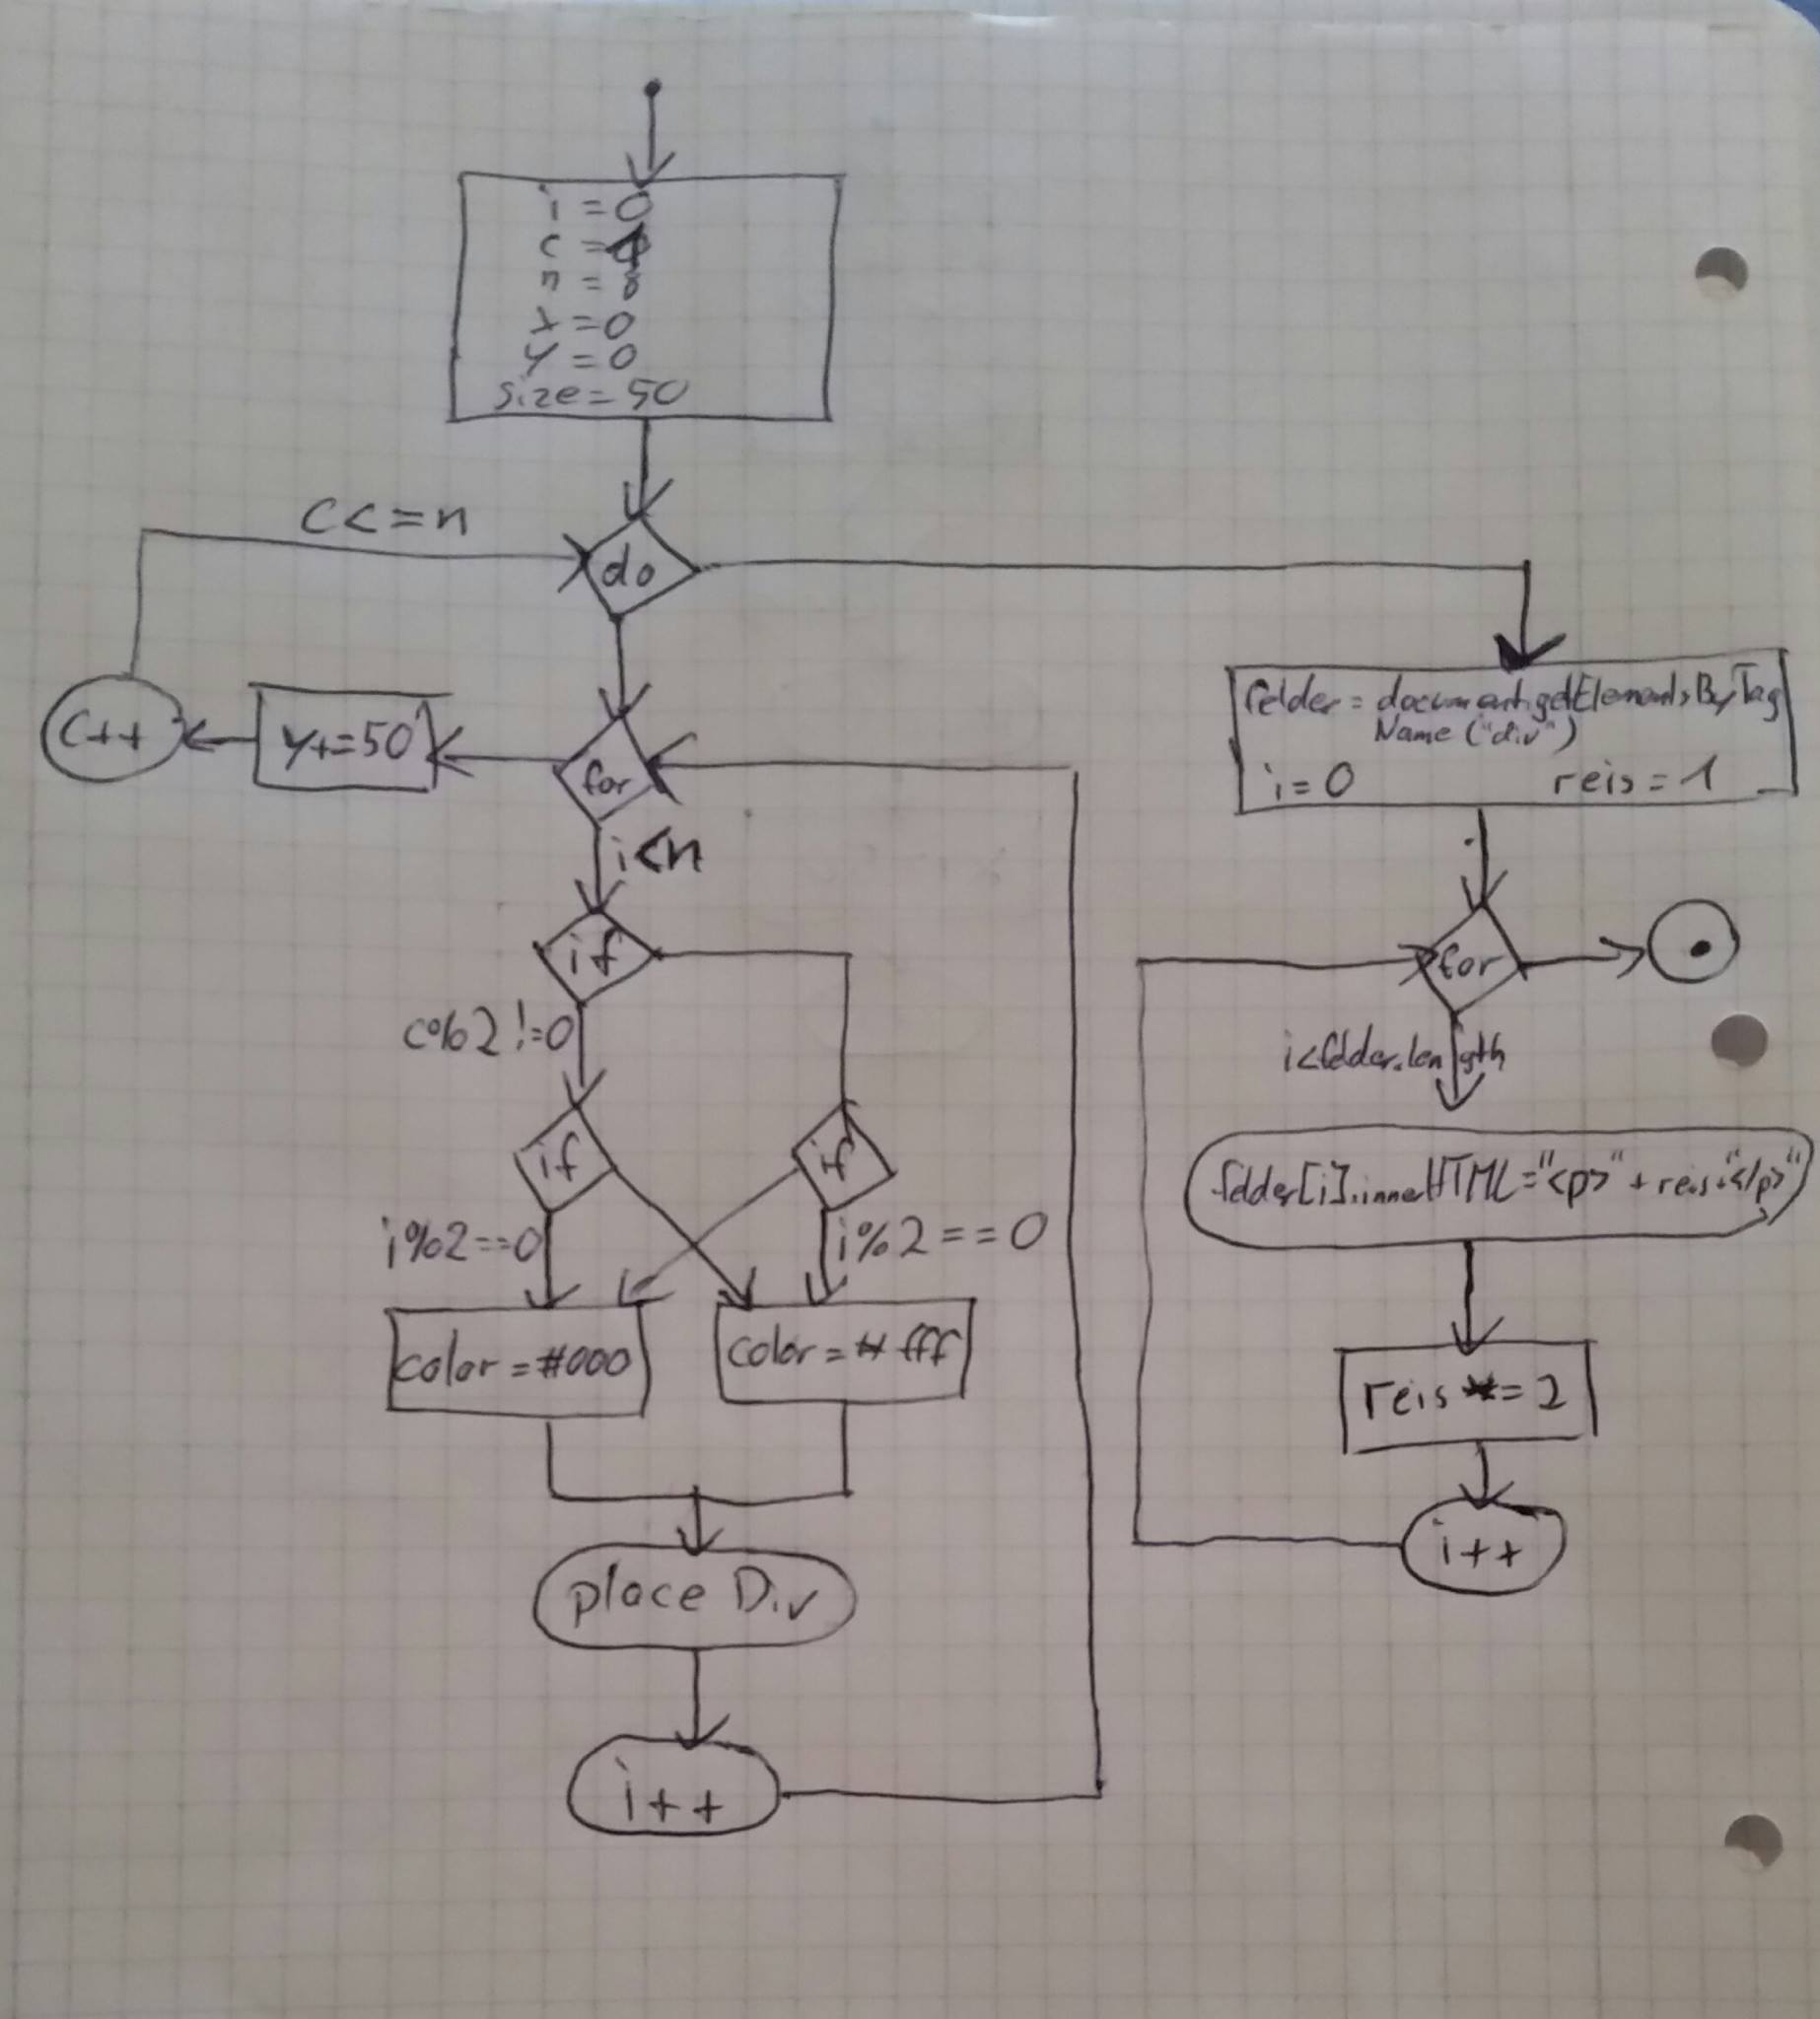 i = 0
c = 1
n = 8
x = 0
y = 0
size = 50
c<=n
do
c++
y+=50
for
i<n
if
c%2!=0
if
if
i%2==0
i%2==0
color = #000
color = #fff
place Div
i++
felder = document.getElementsByTag
Name ("div")
i = 0 reis = 1
for
i<felder.length
felder[i].innerHTML="<p>" + reis+"</p>"
reis *= 2
i++